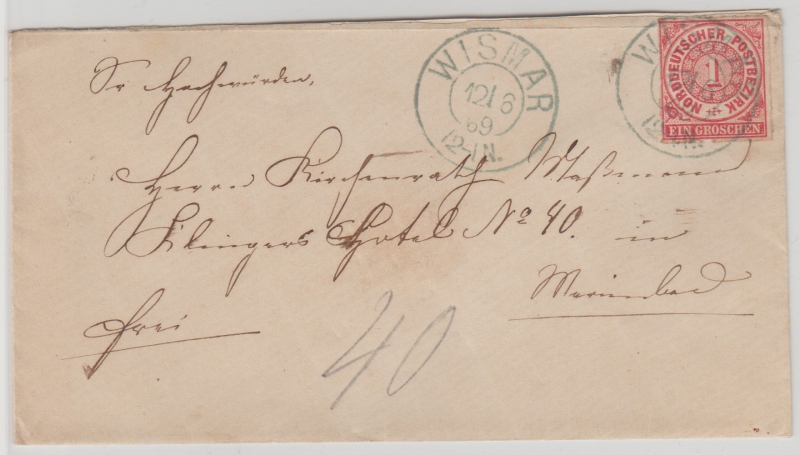 WISMAR
12/6
69
12-1N.
NORDDEUTSCHER POSTBEZIRK
1
EIN GROSCHEN
Sr Hochwürden,
Herrn Kirchenrath Maßmann
Klingers Hotel No 40. in
Marienbad
frei
40